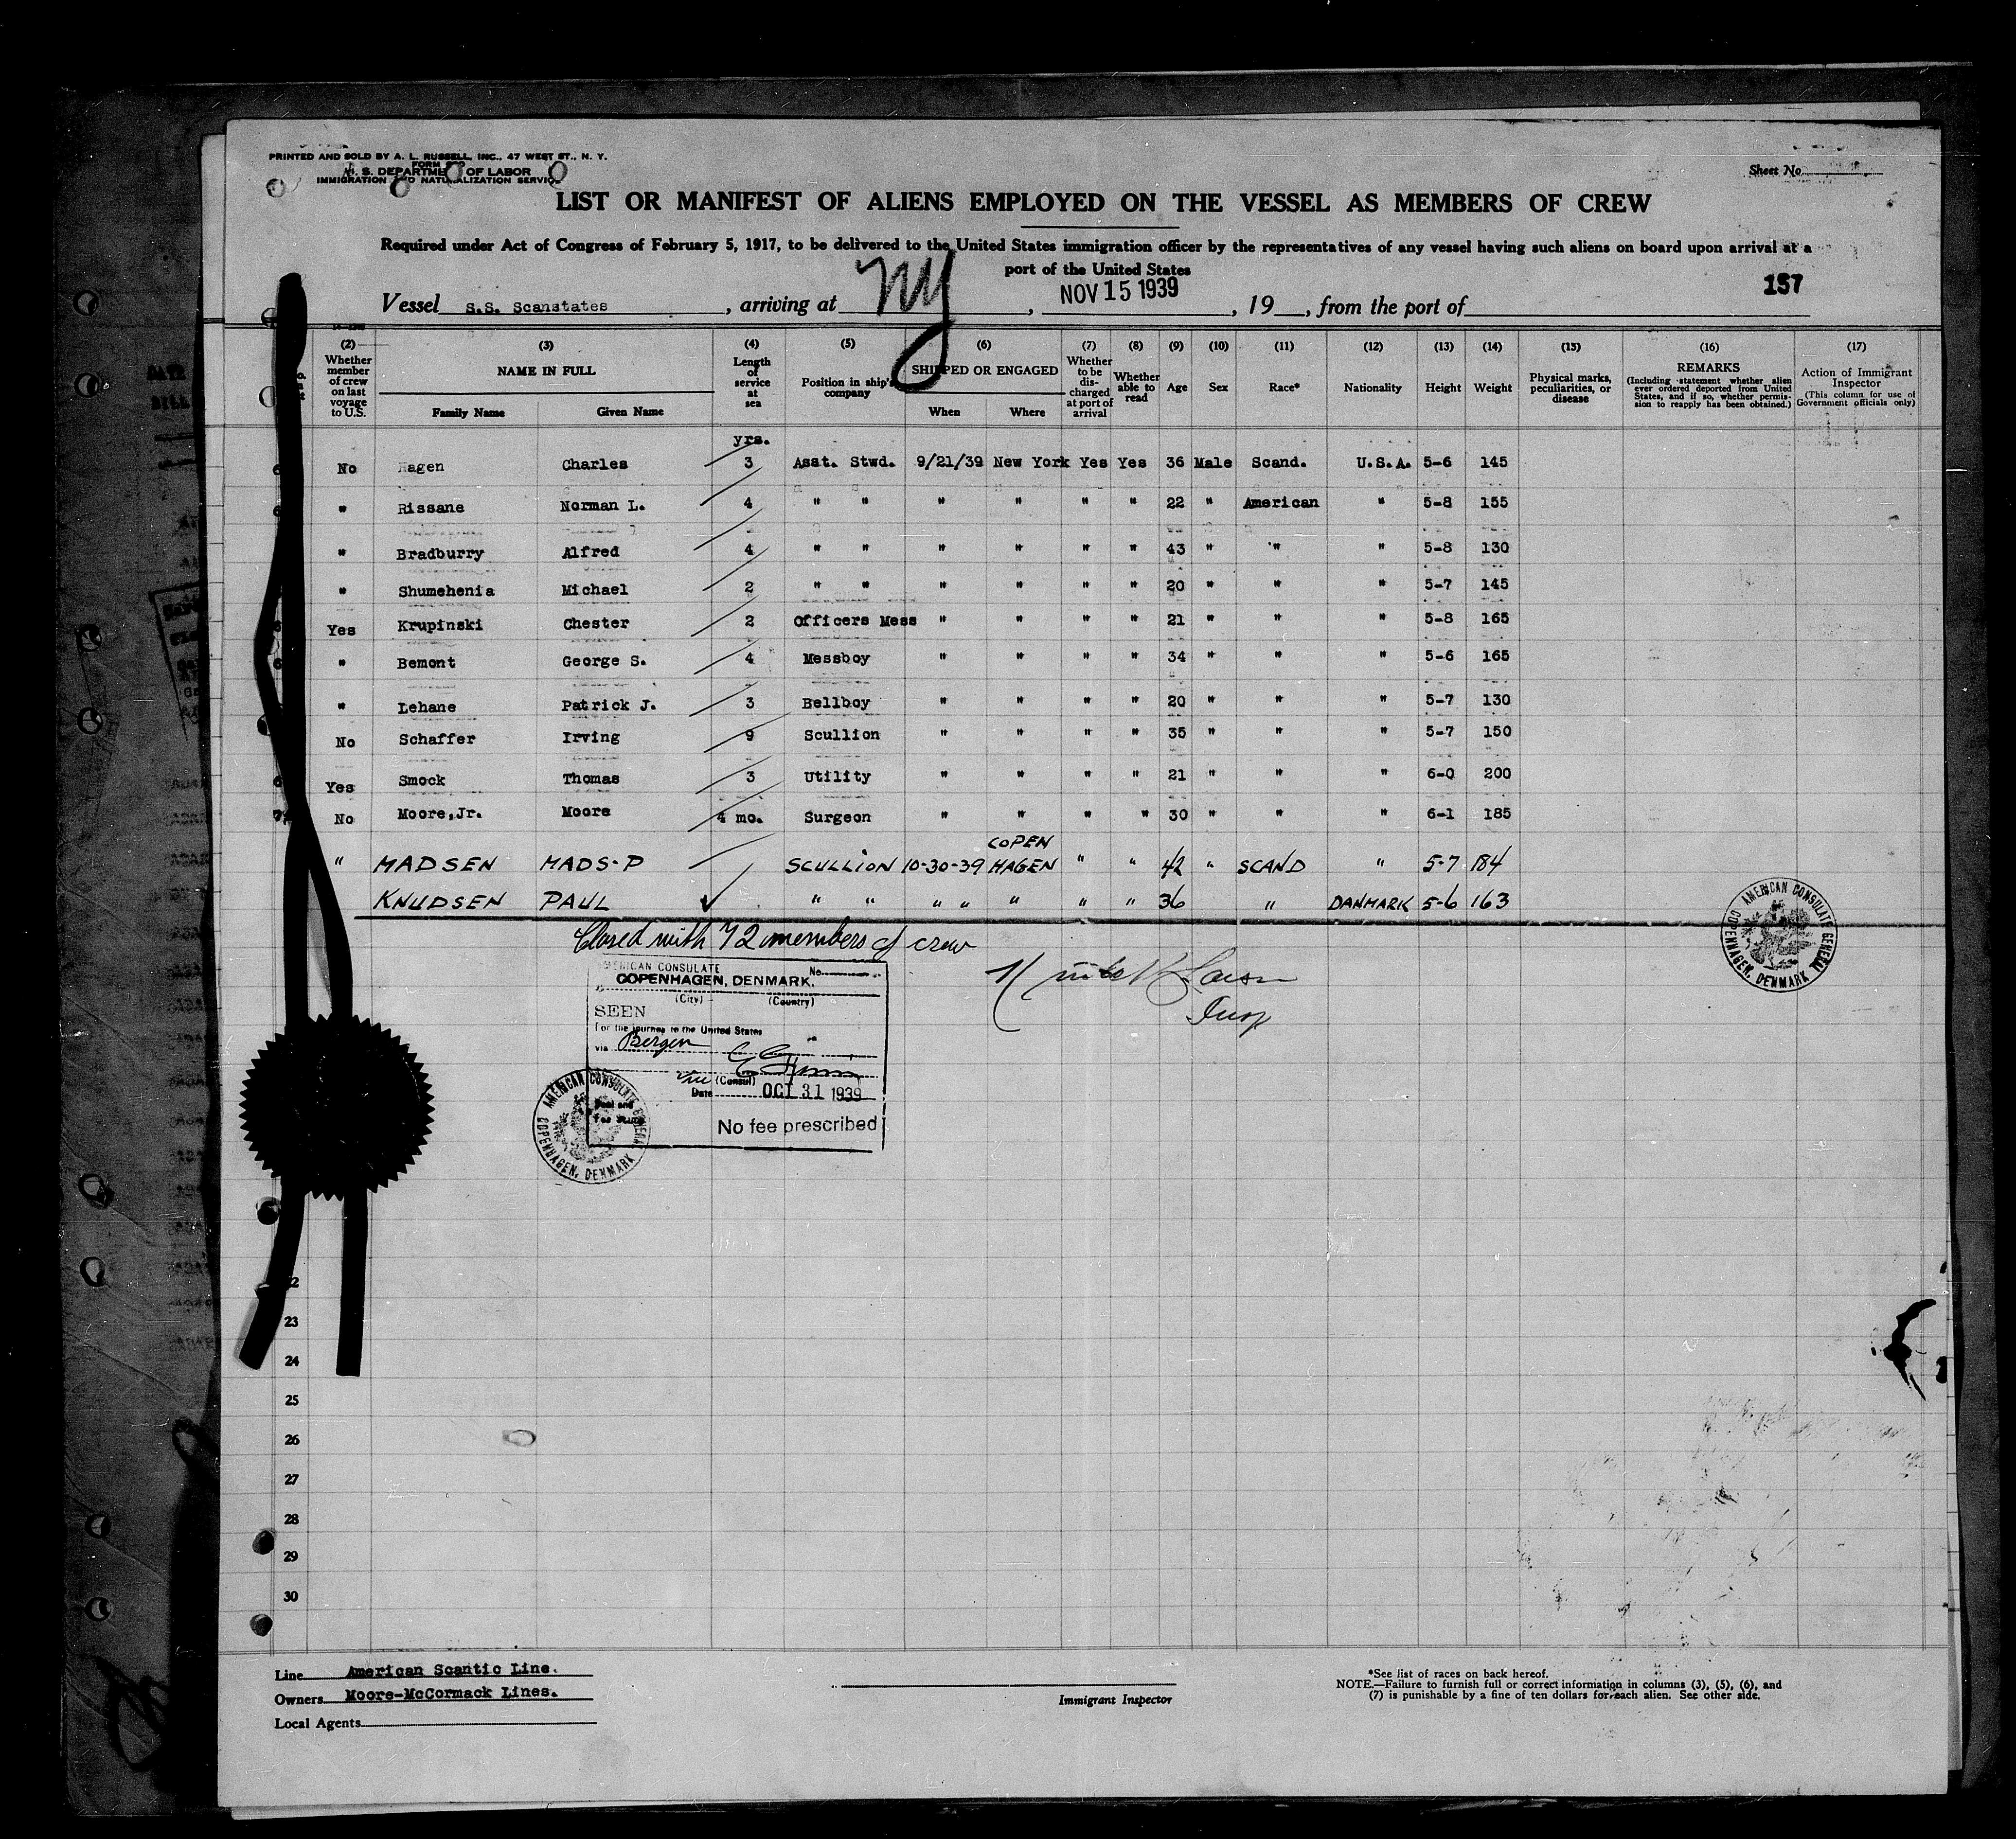 PRINTED AND SOLD BY A. L. RUSSELL, INC., 47 WEST ST., N. Y.
U. S. DEPARTMENT OF LABOR
IMMIGRATION AND NATURALIZATION SERVICE
Sheet No.
LIST OR MANIFEST OF ALIENS EMPLOYED ON THE VESSEL AS MEMBERS OF CREW
Required under Act of Congress of February 5, 1917, to be delivered to the United States immigration officer by the representatives of any vessel having such aliens on board upon arrival at a
port of the United States
157
Vessel S.S. Scanstates, arriving at NY, NOV 15 1939, 19__, from the port of
(2) (3) (4) (5) (6) (7) (8) (9) (10) (11) (12) (13) (14) (15) (16) (17)
Whether member of crew on last voyage to U.S.
NAME IN FULL
Family Name Given Name
Length of service at sea
Position in ship's company
SHIPPED OR ENGAGED
When Where
Whether to be discharged at port of arrival
Whether able to read
Age
Sex
Race*
Nationality
Height
Weight
Physical marks, peculiarities, or disease
REMARKS
(Including statement whether alien ever ordered deported from United States, and if so, whether permission to reapply has been obtained.)
Action of Immigrant Inspector
(This column for use of Government officials only)
yrs.
No Hagen Charles 3 Asst. Stwd. 9/21/39 New York Yes Yes 36 Male Scand. U.S.A. 5-6 145
" Rissane Norman L. 4 " " " " " " 22 " American " 5-8 155
" Bradburry Alfred 4 " " " " " " 43 " " " 5-8 130
" Shumehenia Michael 2 " " " " " " 20 " " " 5-7 145
Yes Krupinski Chester 2 Officers Mess " " " " 21 " " " 5-8 165
" Bemont George S. 4 Messboy " " " " 34 " " " 5-6 165
" Lehane Patrick J. 3 Bellboy " " " " 20 " " " 5-7 130
No Schaffer Irving 9 Scullion " " " " 35 " " " 5-7 150
Yes Smock Thomas 3 Utility " " " " 21 " " " 6-0 200
No Moore,Jr. Moore 4 mo. Surgeon " " " " 30 " " " 6-1 185
" MADSEN MADS-P SCULLION 10-30-39 COPEN HAGEN " " 42 " SCAND " 5-7 184
KNUDSEN PAUL ✓ " " " " " " " 36 " DANMARK 5-6 163
Closed with 72 members of crew
AMERICAN CONSULATE No.
COPENHAGEN, DENMARK.
(City) (Country)
SEEN
For the journey to the United States
via Bergen
(Consul)
Date OCT 31 1939
No fee prescribed
Seal and
Fee Stamp
AMERICAN CONSULATE GENERAL
COPENHAGEN, DENMARK
Insp
AMERICAN CONSULATE GENERAL
COPENHAGEN, DENMARK
23
24
25
26
27
28
29
30
Line American Scantic Line.
Owners Moore-McCormack Lines.
Local Agents
Immigrant Inspector
*See list of races on back hereof.
NOTE.—Failure to furnish full or correct information in columns (3), (5), (6), and
(7) is punishable by a fine of ten dollars for each alien. See other side.